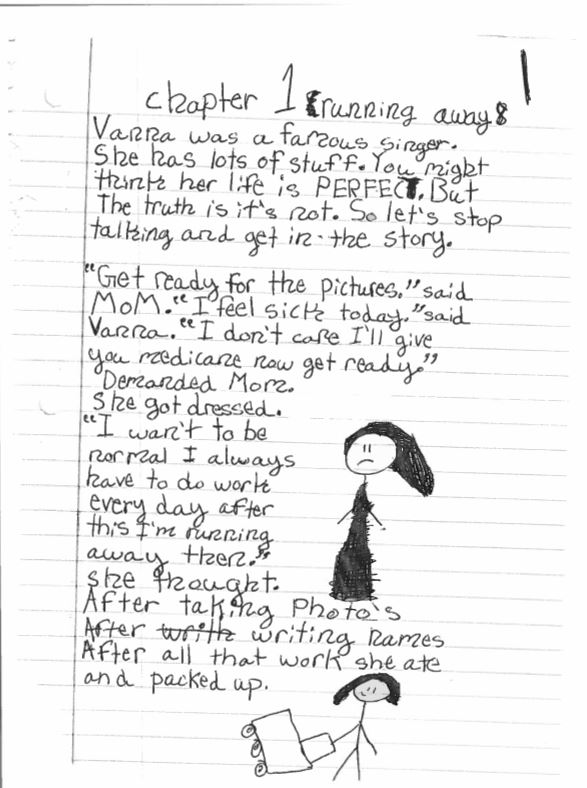 1
chapter 1 running away
Vanna was a famous singer.
She has lots of stuff. You might
think her life is PERFECT. But
The truth is it's not. So let's stop
talking and get in the story.
"Get ready for the pictures." said
MoM. "I feel sick today." said
Vanna. "I don't care I'll give
you medicane now get ready."
Demanded Mom.
She got dressed.
"I wan't to be
normal I always
have to do work
every day after
this I'm running
away then."
she thought.
After taking Photo's
After writh writing names
After all that work she ate
and packed up.